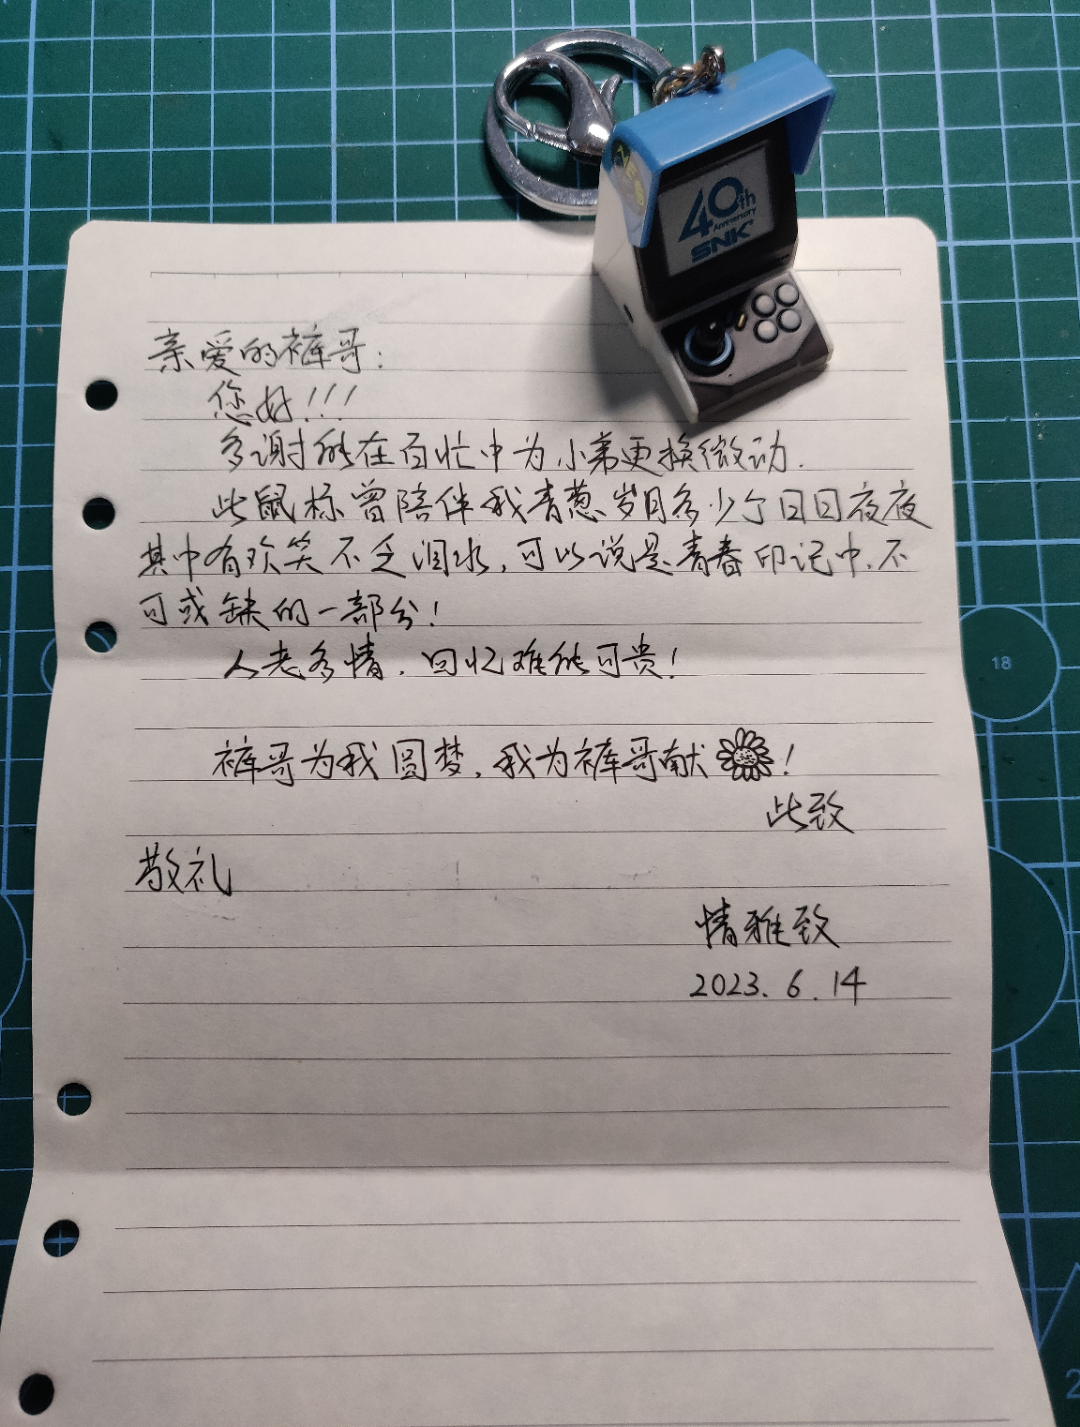 40th
Anniversary
SNK
亲爱的裤哥:
您好!!!
多谢能在百忙中为小弟更换微动.
此鼠标曾陪伴我青葱岁月多少个日日夜夜
其中有欢笑不乏泪水,可以说是青春印记中.不
可或缺的一部分!
人老多情.回忆难能可贵!
18
裤哥为我圆梦,我为裤哥献!
此致
敬礼
情雅致
2023.6.14
2